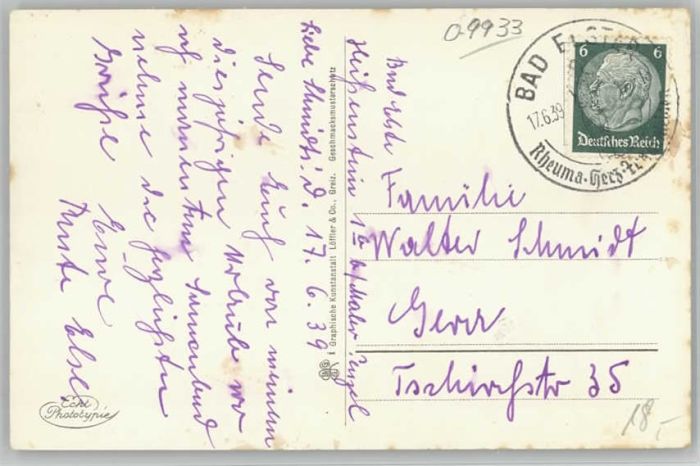 0-9933
BAD ELSTER
17.6.39
Rheuma-Herz-
6 6
Deutsches Reich
Bad Elster
1 b b/Maler
Liebe Schmidts! D. 17.6.39
Sende Euch von meinem
diesjährigen Urlaub wo
ich momentan Sonnenbad
nehme die herzlichsten
Grüße Eure
Tante Else
Graphische Kunstanstalt Löffler & Co., Greiz. Geschmacksmusterschutz
Familie
Walter Schmidt
Gera
Tschirchstr 35
Echt
Photototypie
18,-